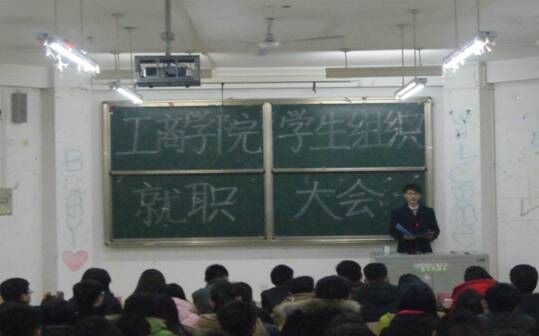 工商学院 学生组织
就职 大会
BABY
WELCOME